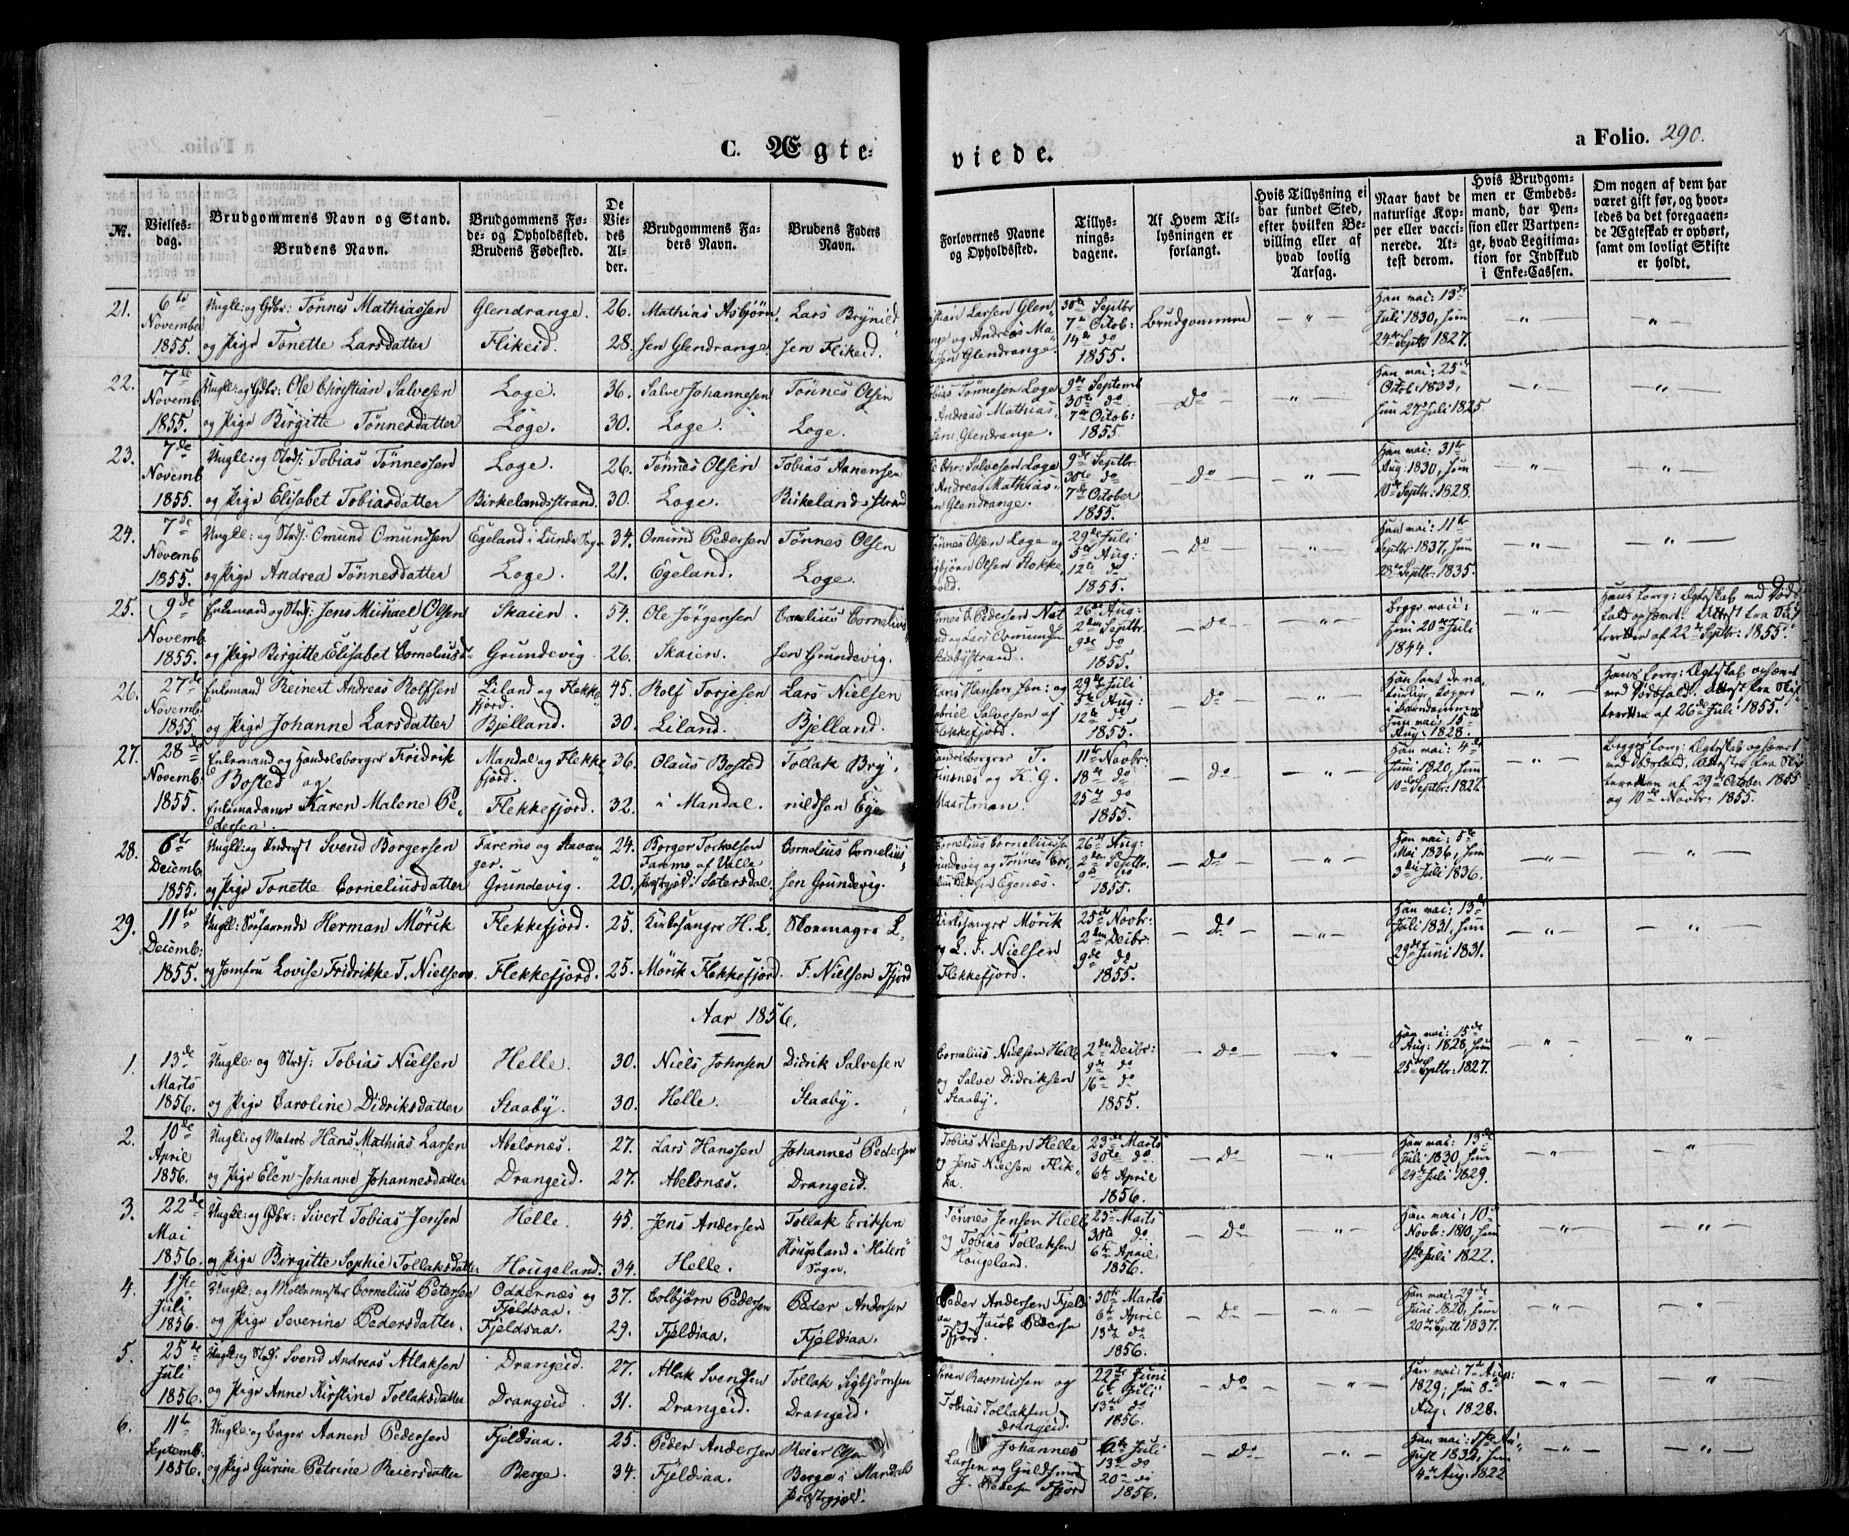 C. Ægte-
viede.
a Folio. 290.
№.
Vielses-
dag.
Brudgommens Navn og Stand.
Brudens Navn.
Brudgommens Fø-
de- og Opholdssted.
Brudens Fødested.
De
Vie-
des
Al-
der.
Brudgommens Fa-
ders Navn.
Brudens Faders
Navn.
Forlovernes Navne
og Opholdssted.
Tillys-
nings-
dagene.
Af Hvem Til-
lysningen er
forlangt.
Hvis Tillysning ei
har fundet Sted,
efter hvilken Be-
villing eller af
hvad lovlig
Aarsag.
Naar havt de
naturlige Kop-
per eller vacci-
nerede. At-
test derom.
Hvis Brudgom-
men er Embeds-
mand, har Pen-
sion eller Vartpen-
ge, hvad Legitima-
tion for Indskud
i Enke-Cassen.
Om nogen af dem har
været gift før, og hvor-
ledes da det foregaaen-
de Ægteskab er ophørt,
samt om lovligt Skifte
er holdt.
21. 6te November 1855.
Ungk: og Gdbr: Tönnes Mathiassen Glendrange. 26. Mathias Asbjörn- Lars Brynild-
og Pige Tonette Larsdatter Flikeid. 28. sen Glendrange. sen Flikeid.
stian Larsen Glen-
nge og Andreas Ma-
sen Glendrange.
30te Septbr
7de Octob:
14de do
1855.
Brudgommen
Han vac: 13de
Juli 1830, hun
24de Septb 1827.
22. 7de Novemb. 1855.
Ungk: og Gdbr: Ole Christian Salvesen Loge. 36. Salve Johannesen Tönnes Olsen
og Pige Birgitte Tönnesdatter Loge. 30. Loge. Loge.
obias Tönnesen Loge
Andreas Mathias-
sen Glendrange.
9de Septemb
30te do
7de Octob:
1855.
Do
Han vac: 25de
Octob. 1833,
hun 27de Juli 1825.
23. 7de Novemb 1855.
Ungk: og Strds: Tobias Tönnessen Loge. 26. Tönnes Olsen Tobias Aanensen
og Pige Elisabet Tobiasdatter Birkelandsstrand. 30. Loge. Birkelandsstrand
Chr: Salvesen Loge
Andreas Mathias-
en Glendrange.
9de Septbr
30te do
7de October
1855.
Do
Han vac: 31te
Aug: 1830, hun
10de Septbr: 1828.
24. 7de Novemb. 1855.
Ungk: og Strds: Omund Omundsen Egeland i Lunde Sogn 34. Omund Pedersen Tönnes Olsen
og Pige Andrea Tönnesdatter Loge. 21. Egeland. Loge.
Tönnes Olsen Loge og
Sigbjörn Olsen Stokke-
vold.
29de Juli
5te Aug:
12te do
1855.
Do
Han vac: 11te
Septbr: 1837, hun
28de Septbr. 1835.
25. 9de Novemb. 1855.
Enkemand og Strds: Jens Michael Olsen Skaien. 54. Ole Jörgensen Cornelius Cornelius-
og Pige Birgitte Elisabet Corneliusd. Grundevig. 26. Skaien. sen Grundevig.
önnes Pedersen Nat
and og Lars Osmundsen
Staabystrand.
26de Aug:
2den Septbr.
9de do
1855.
Do
Begge vac:
hun 20de Juli
1844.
Hans forrg: Ægteskab ved Döds-
fald ophævet. Attest fra Skif-
teretten af 22de Septbr: 1855.
26. 27de Novemb: 1855
Enkemand Reinert Andreas Rolfsen Liland og Flekke- 45. Rolf Torjesen Lars Nielsen
fjord.
og Pige Johanne Larsdatter Bjelland. 30. Liland. Bjelland.
Hans Hansen Jon: og
Gabriel Salvesen af
Flekkefjord.
29de Juli
5te Aug:
12te do
1855.
Do
Han havt de na-
turlige Kopper
i Barndommen
hun vac: 15de
Aug: 1828.
Hans forrg: Ægteskab ophævet
ved Dödsfald. Attest fra Skif-
teretten af 26de Juli 1855.
27. 28de Novemb: 1855.
Enkemand og Handelsborger Fridrik Mandal og Flekke- 36. Olaus Bosted Tollak Bry-
Bosted og fjord.
Enkemadame Karen Malene Pe- Flekkefjord. 32. i Mandal. nildsen Eye
dersen.
Handelsborgere T.
Finsnes og K. G.
Maartman.
11te Novbr:
18de do
25de do
1855.
Do
Han vac: 4de
Juni 1820, hun
10de Septbr: 1826.
Begges forrg: Ægteskab ophævet
ved Dödsfald. Attester fra Skif-
teretten af 29de October 1855
og 10de Novbr: 1855.
28. 6te Decemb. 1855.
Ungk: og Svend Borgersen Faremo og Stavan- 24. Borger Torkelsen Cornelius Cornelius-
ger. Faremo af Valle
og Pige Tonette Corneliusdatter Grundevig. 20. Prstgjeld: Sætersdal. sen Grundevig.
Cornelius Corneliussen
Grundevig og Tönnes Cor-
Egenæs.
26de Aug:
2den Septbr.
9de do
1855.
Do
Han vac: 5te
Mai 1836, hun
3die Juli 1836.
29. 11te Decemb: 1855.
Ungk: Söfarende Herman Mörik Flekkefjord. 25. Kirkesanger H. L. Skomager L.
og Jomfru Lovise Fridrikke T. Nielsen. Flekkefjord. 25. Mörik Flekkefjord. F. Nielsen Ffjord
Kirkesanger Mörik
og L. F. Nielsen
Flekkefjord.
25de Novbr:
2den Decbr:
9de do
1855.
Do
Han vac: 13de
Juli 1831, hun
29de Juni 1831.
Aar 1856.
1. 13de Marts 1856.
Ungk: og Strds: Tobias Nielsen Helle. 30. Niels Johnsen Didrik Salvesen
og Pige Caroline Didriksdatter Staaby. 30. Helle. Staaby.
Cornelius Nielsen Helle
og Salve Didriksen
Staaby.
2den Decbr:
9de do
16de do
1855.
Do
Han vac: 15de
Aug: 1828, hun
25de Septbr: 1827.
2. 10de April 1856.
Ungk: og Matros Hans Mathias Larsen Abelsnæs. 27. Lars Hanssen Johannes Pedersen
og Pige Elen Johanne Johannesdatter Drangeid. 27. Abelsnæs. Drangeid.
Tobias Nielsen Helle
og Jens Nielsen Flik-
ka.
23de Marts
30te do
6te April
1856.
Do
Han vac: 13de
Juli 1830, hun
24de Juli 1829.
3. 22de Mai 1856.
Ungk: og Gdbr: Sivert Tobias Jensen Helle. 45. Jens Andersen Tollak Eriksen
og Pige Birgitte Sophie Tollaksdatter Hougeland. 34. Helle. Hougeland i Hiterö
Sogn.
Tönnes Jensen Helle
og Tobias Tollaksen
Hougeland.
23de Marts
30te do
6te April.
1856.
Do
Han vac: 10de
Novbr: 1810, hun
1ste Juli 1822.
4. 1ste Juli 1856.
Ungk: og Möllermester Cornelius Petersen Oddernæs og 37. Colbjörn Pedersen Peder Andersen
Fjeldsaa.
og Pige Severine Pedersdatter. Fjeldsaa. 29. Fjeldsaa. Fjeldsaa.
Peder Andersen Fjeld-
saa og Jacob Pedersen
Ffjord.
30te Marts
6te April
13de do
1856.
Do
Han vac: 29de
Juni 1820, hun
20de Septb 1837.
5. 25de Juli 1856.
Ungk: og Strds: Svend Andreas Atlaksen Drangeid. 27. Atlak Svendsen Tollak Sigbjörnsen
og Pige Anne Kirstine Tollaksdatter Drangeid. 31. Drangeid. Drangeid.
Sören Rasmussen og
Tobias Tollaksen
Drangeid.
22de Juni
6te Juli
13de do
1856.
Do
Han vac: 7de Aug:
1829, hun 8de
Aug: 1828.
6. 11te Septemb. 1856.
Ungk: og Bager Aanen Pedersen Fjeldsaa. 25. Peder Andersen Reier Olsen
og Pige Gurine Petrine Reiersdatter Berge. 34. Fjeldsaa. Berge i Mandals
Prstegjeld.
Johannes
Larsen og Guldsmed
J. Pedersen Ffjord
6te Juli
13de do
20de do
1856.
Do
Han vac: 1ste Au-
gust 1832, hun
4de Aug: 1822